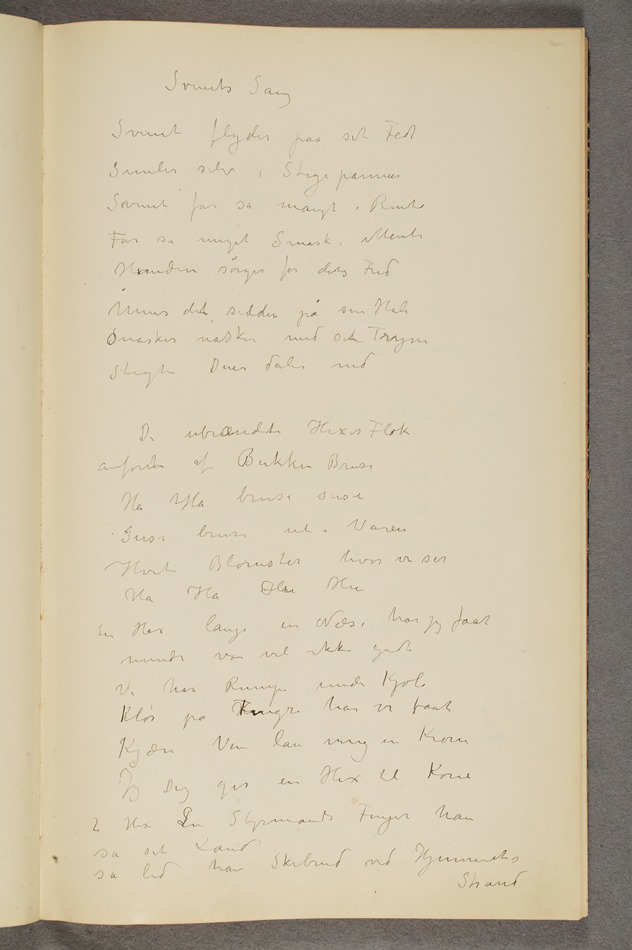 Svinets Sang
Svinet flyder paa sit Fedt
Smiler selv i Stegepannen
Svinet far sa mangt i
Far sa meget Smask i
sørger for dets Fred
det sidder på sin Hale
Smasker nasker med sit Tryne
Stegte Duer daler ned
De ubrændte Hexes Flok
anførte af Bukken Bruse
Ha Ha bruse suse
Suse bruse ut i Varen
Hvert Blomster hvor vi ser
Ha Ha Hu Hu
En Har lange en Næse har jeg faat
mindre var vel ikke godt
Vi har Rumpe under Kjole
Klør på Fingre har vi faat
Kjære Ven lan mig en Krone
Jeg Dig gir en Hex til Kone
2 Hex En Styrmands Finger han
sa sit Land
sa led han Skibrud ved Hjemmets
Strand